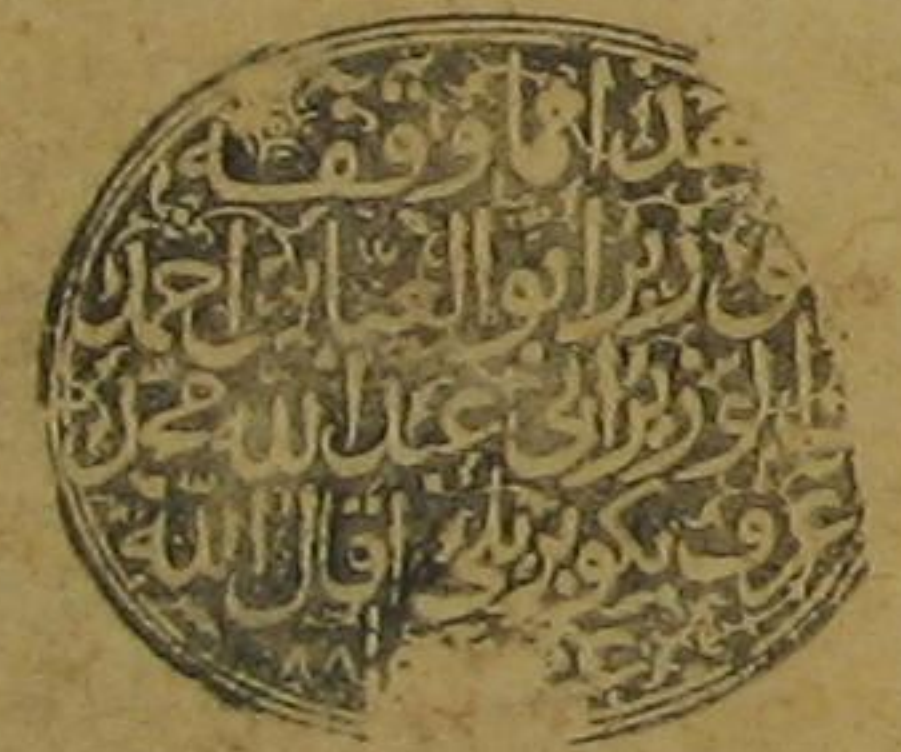 هذا مما وقفه
وزير ابو العباس احمد
الوزير ابي عبد الله محمد
عرف بكوبريلي اقال الله
٨٨